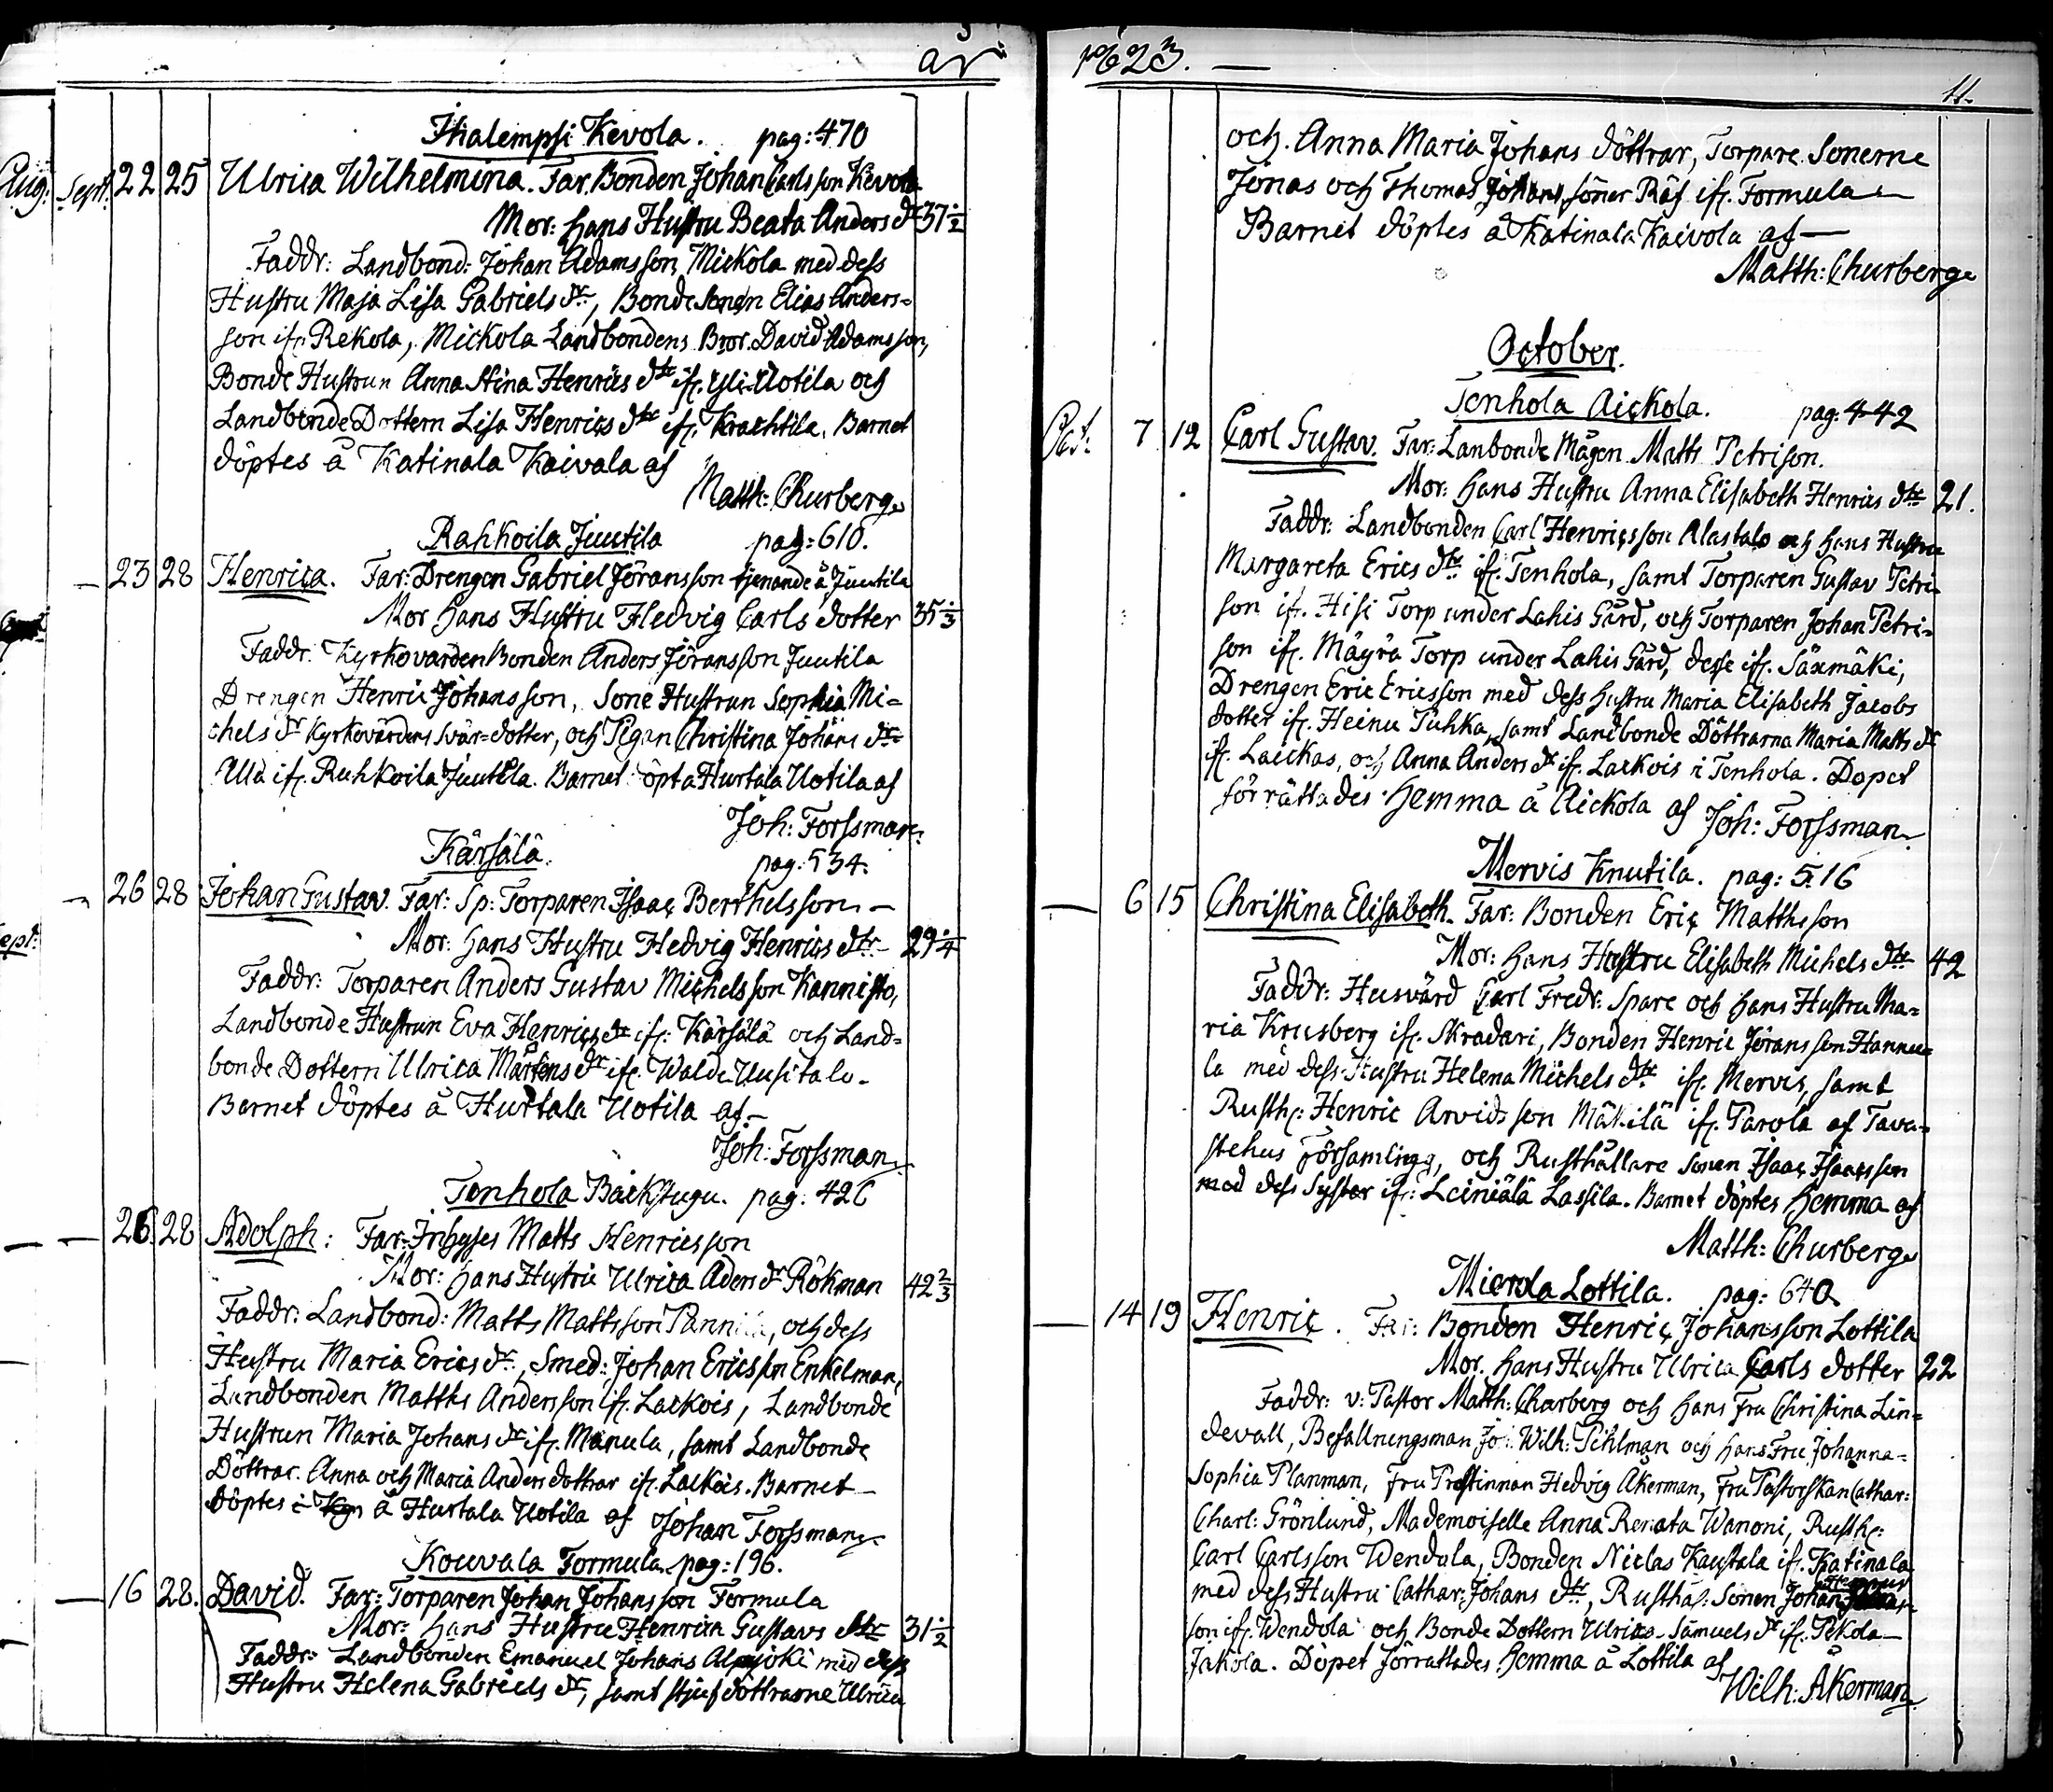 år
Ihalempsi Kevola. pag: 470
Aug: Sept: 22 25 Ulrica Wilhelmina. Far. Bonden Johan Carlsson Kevola
Mor: hans Hustru Beata Anders dr 37 1/2
Faddr: Landbond: Johan Adamsson Mickola med dess
Hustru Maja Lisa Gabriels dr, Bonde Sonen Elias Anders=
son ifr. Rekola, Mickola Landbondens Bror David Adamsson,
Bonde Hustrun Anna Stina Henrics dtr ifr. Yli-Uotila och
Landbonde Dottern Lisa Henrics dtr ifr. Krachtila. Barnet
döptes å Katinala Kaivala af
Matth: Churberg.
Rahkoila Juutila pag: 610.
23 28 Henrica. Far: Drengen Gabriel Jöransson tjenande å Juutila
Mor hans Hustru Hedvig Carls dotter 35 1/3
Faddr: Kyrkovarden Bonden Anders Jöransson Juutila
Drengen Henric Johansson, Sone Hustrun Sophia Mi=
chels dr Kyrkovärdens Svär=dotter, och Pigan Christina Johans dr
Alla ifr. Ruhkoila Juutila. Barnet öpt a Hurtala Uotila af
Joh: Forssman.
Kärsälä. pag. 534.
26 28 Johan Gustav. Far: Sp: Torparen Isaac Berthelsson
Mor: hans Hustru Hedvig Henrics dtr 29 1/4
Faddr: Torparen Anders Gustav Michelsson Kannisto,
Landbonde Hustrun Eva Henrics dr ifr: Kärsälä och Land=
bonde Dottern Ulrica Mårtens dr ifr. Walde Uusitalo.
Barnet döptes å Hurtala Uotila af
Joh: Forssman.
Tenhola Backstugu. pag: 426
26 28 Adolph: Far: Inhyses Matts Henricsson
Mor: hans Hustru Ulrica Aders dr Rökman 42 2/3
Faddr: Landbond: Matts Mattsson, och dess
Hustru Maria Erics dr, Smed: Johan Ericsson Enkelman,
Landbonden Matths Andersson ifr. Lackois, Landbonde
Hustrun Maria Johans dr ifr. Manula, samt Landbonde
Döttrar. Anna och Maria Anders dottrar ifr. Lackois. Barnet
döptes å Hurtala Uotila af Johan Forssman.
Kouvala Formula pag: 196.
16 28. David. Far: Torparen Johan Johansson Formula
Mor: hans Hustru Henrica Gustavs dtr 31 1/2
Faddr: Landbonden Emanuel Johans Alapjoki med dess
Hustru Helena Gabriels dr, samt stjuf döttrarne Ulrica
1823.
11.
och Anna Maria Johans döttrar, Torpare Sonerne
Jonas och Thomas Johans söner Räf ifr. Formula
Barnet döptes å Katinala Kaivola af
Matth: Churberg
October.
Tenhola Aickola. pag. 442
Oct: 7 12 Carl Gustav. Far: Lanbonde Mågen Matts Petrison.
Mor: hans Hustru Anna Elisabeth Henrics dtr 21.
Faddr: Landbonden Carl Henricsson Alastalo och hans Hustru
Margareta Erics dtr ifr. Tenhola, samt Torparen Gustav Petri=
son ifr. Hisi Torp under Lahis Gård, och Torparen Johan Petri=
son ifr. Mäyrä Torp under Lahis Gård, desse ifr. Säxmäki,
Drengen Eric Ericsson med dess Hustru Maria Elisabeth Jacobs
dotter ifr. Heinu Tuhka, samt Landbonde Döttrarna Maria Matts dr
ifr. Laickas, och Anna Anders dr ifr. Lackois i Tenhola. Dopet
förrättades hemma å Aickola af Joh: Forssman.
Mervis Knutila. pag: 516
6 15 Christina Elisabeth. Far: Bonden Eric Matthsson
Mor: hans Hustru Elisabeth Michels dtr 42
Faddr: Husvärd Carl Fredr: Spare och hans Hustru Ma=
ria Krusberg ifr. Skradari, Bonden Henric Jöransson Hannu=
la med dess Hustru Helena Michels dtr ifr. Mervis, samt
Rusth: Henric Arvidsson Mäkilä ifr. Parola af Tava=
stehus Församling, och Rusthållare Sonen Isaac Isaacsson
med dess Syster ifr: Leiniälä Lassila. Barnet döptes hemma af
Matth: Churberg
Mierola Lottila. pag: 640
14 19 Henric. Far: Bonden Henric Johansson Lottila
Mor. hans Hustru Ulrica Carls dotter 22
Faddr: v: Pastor Matth: Churberg och hans Fru Christina Lin=
devall, Befallnungsman Jo: Wilh: Pihlman och hans Fru Johanna=
Sophia Planman, Fru Prostinnan Hedvig Akerman, Fru Pastorskan Cathar:
Charl: Grönlund, Mademoiselle Anna Renata Wanoni, Rusth:
Carl Carlsson Wendola, Bonden Niclas Kaustala ifr. Katinala
med dess Hustru Cathar: Johans dtr, Rusthål: Sonen Johan
son ifr. Wendola och Bonde Dottern Ulrica Samuels dr ifr. Pekola
Jakola. Dopet förrättades hemma å Lottila af
Wilh: Åkerman.